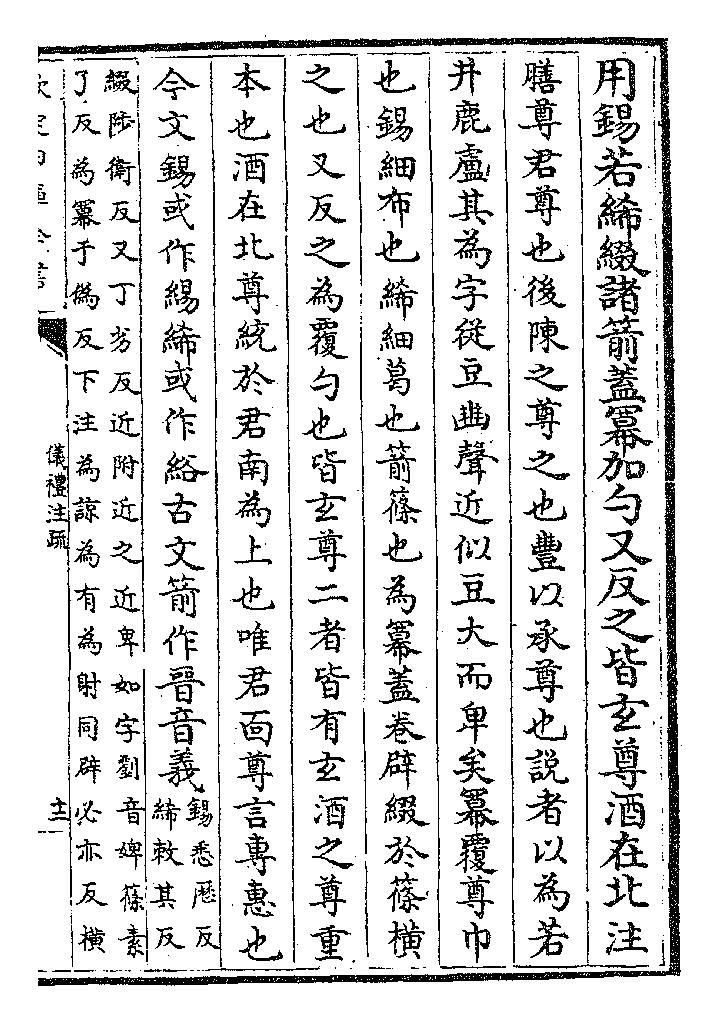 用錫若絺綴諸箭蓋冪加勺又反之皆玄尊酒在北注
膳尊君尊也後陳之尊之也豐以承尊也説者以為若
井鹿盧其為字從豆𠁳聲近似豆大而卑矣冪覆尊巾
也錫細布也絺細葛也箭篠也為冪蓋卷辟綴於篠橫
之也又反之為覆勺也皆玄尊二者皆有玄酒之尊重
本也酒在北尊統於君南為上也唯君面尊言專惠也
今文錫或作緆絺或作綌古文箭作晉音義
錫悉歷反
絺敕其反
綴陟衛反又丁劣反近附近之近卑如字劉音婢篠素
了反為冪于偽反下注為諒為有為射同辟必亦反橫
儀禮注疏
十二